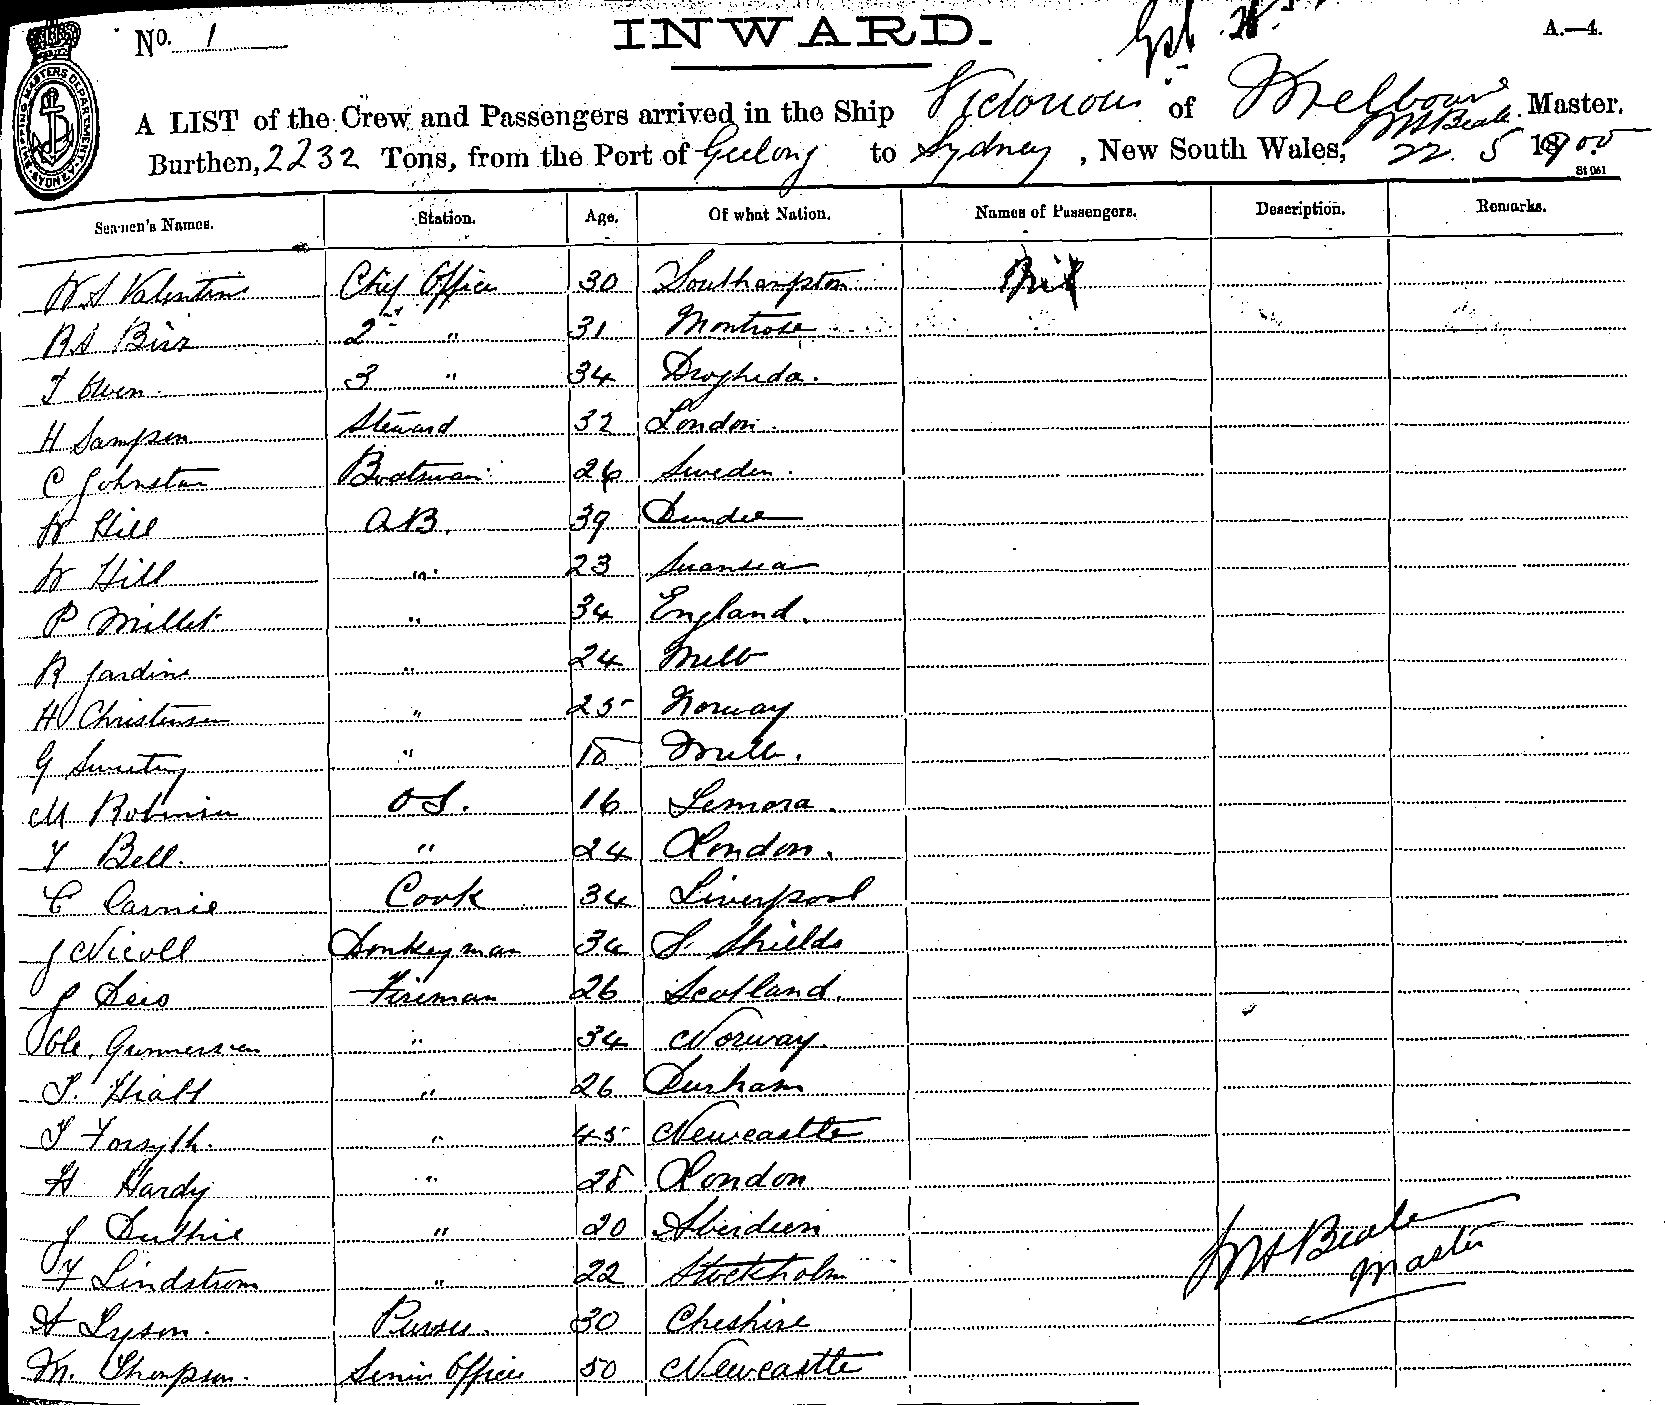 No. 1
INWARD.
A.—4.
A LIST of the Crew and Passengers arrived in the Ship Victorious of Melbourne Master.
W H Beale
Burthen, 2232 Tons, from the Port of Geelong to Sydney, New South Wales, 22. 5 1900
St 961
Seamen's Names. Station. Age. Of what Nation. Names of Passengers. Description. Remarks.
W S Valentine Chief Officer 30 Southampton
R A Birr 2nd " 31 Montrose
T Owen 3 " 34 Drogheda.
H Sampson Steward 32 London.
C Johnston Boatswain 26 Sweden.
W Hill A.B. 39 Dundee
W Hill " 23 Swansea
P Millet " 34 England.
R Jardine " 24 Melb
H Christensen " 25 Norway
G " 18 Melb.
M Robinson O S. 16
T Bell. " 24 London.
C Carnie Cook 34 Liverpool
J Nicoll Donkeyman 34 S. Shields
J Fireman 26 Scotland.
Ole Gunnersen " 34 Norway.
T. Hiatt " 26 Durham
T Forsyth. " 45 Newcastle
H Hardy " 28 London
J Duthie " 20 Aberdeen
F Lindstrom " 22 Stockholm
A Lyson. Purser. 30 Cheshire
M. Thompson. Senior Officer 50 Newcastle
W H Beale
Master